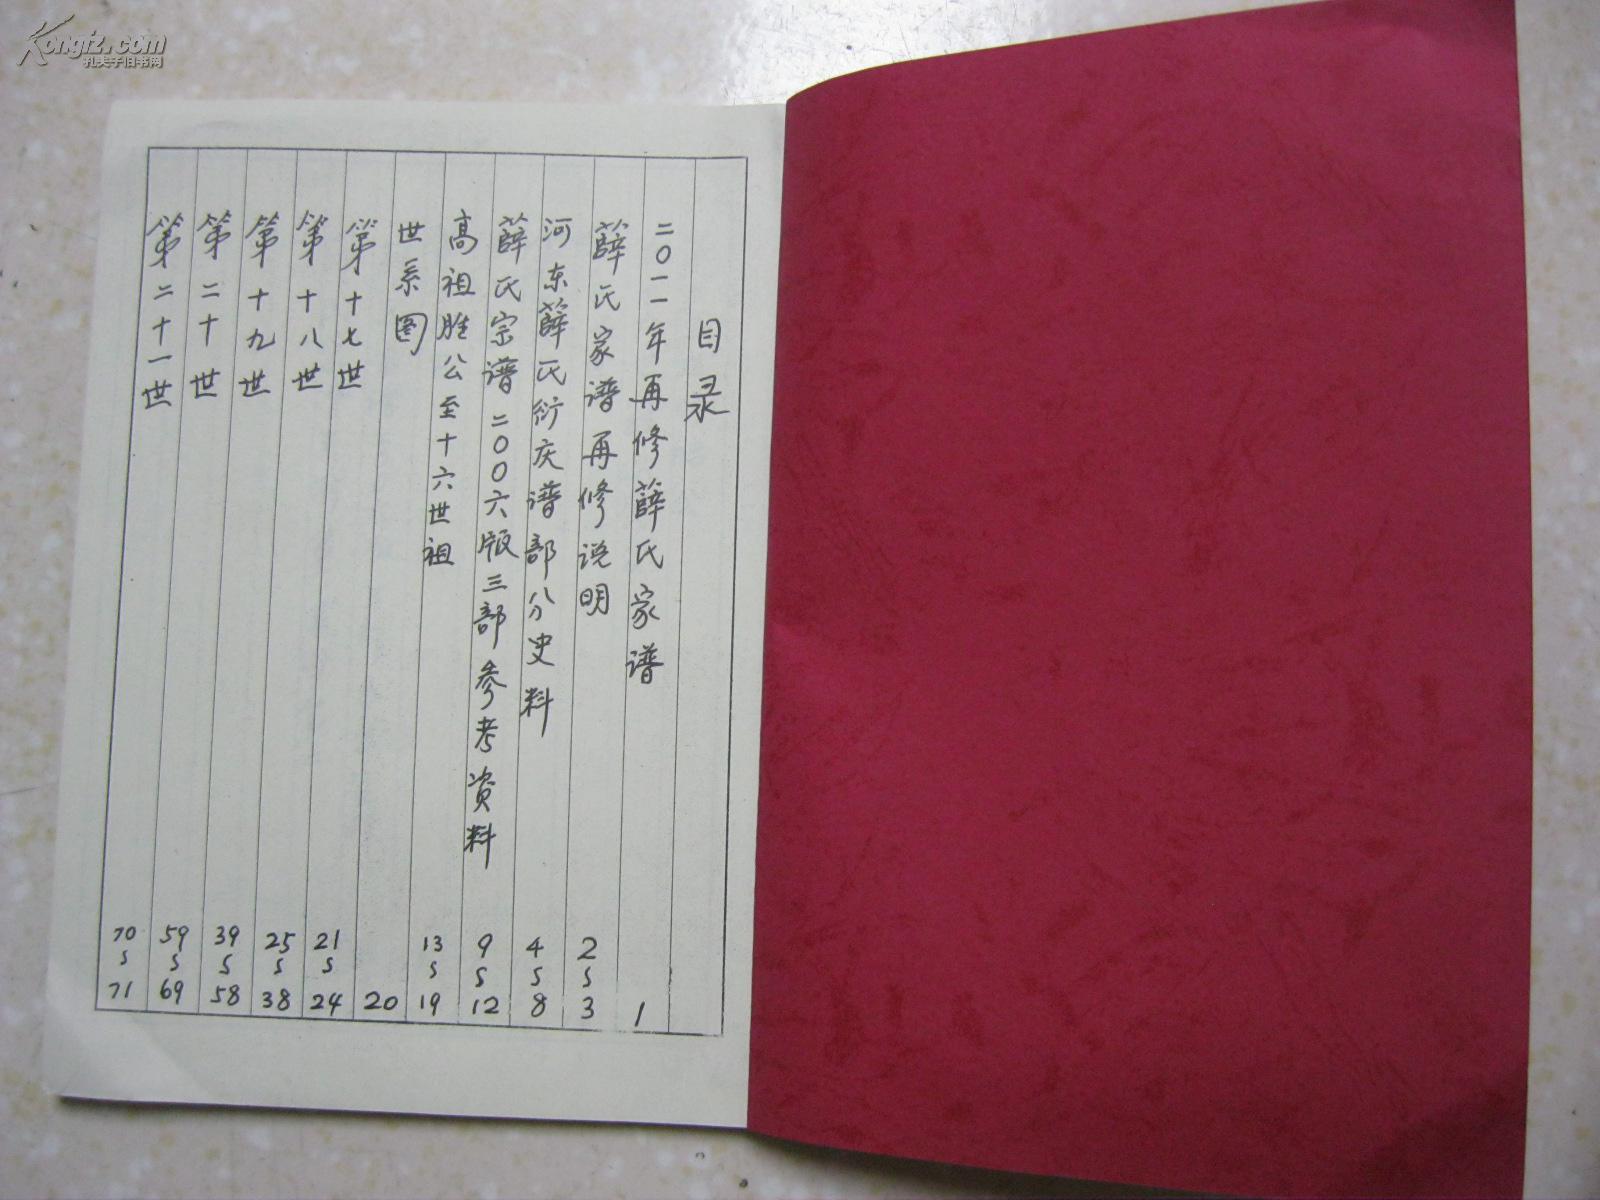 Kongfz.com
孔夫子旧书网
目录
二〇一一年再修薛氏家谱 1
薛氏家谱再修说明 2~3
河东薛氏衍庆谱部分史料 4~8
薛氏宗谱二〇〇六版三部参考资料 9~12
高祖胜公至十六世祖 13~19
世系图 20
第十七世 21~24
第十八世 25~38
第十九世 39~58
第二十世 59~69
第二十一世 70~71